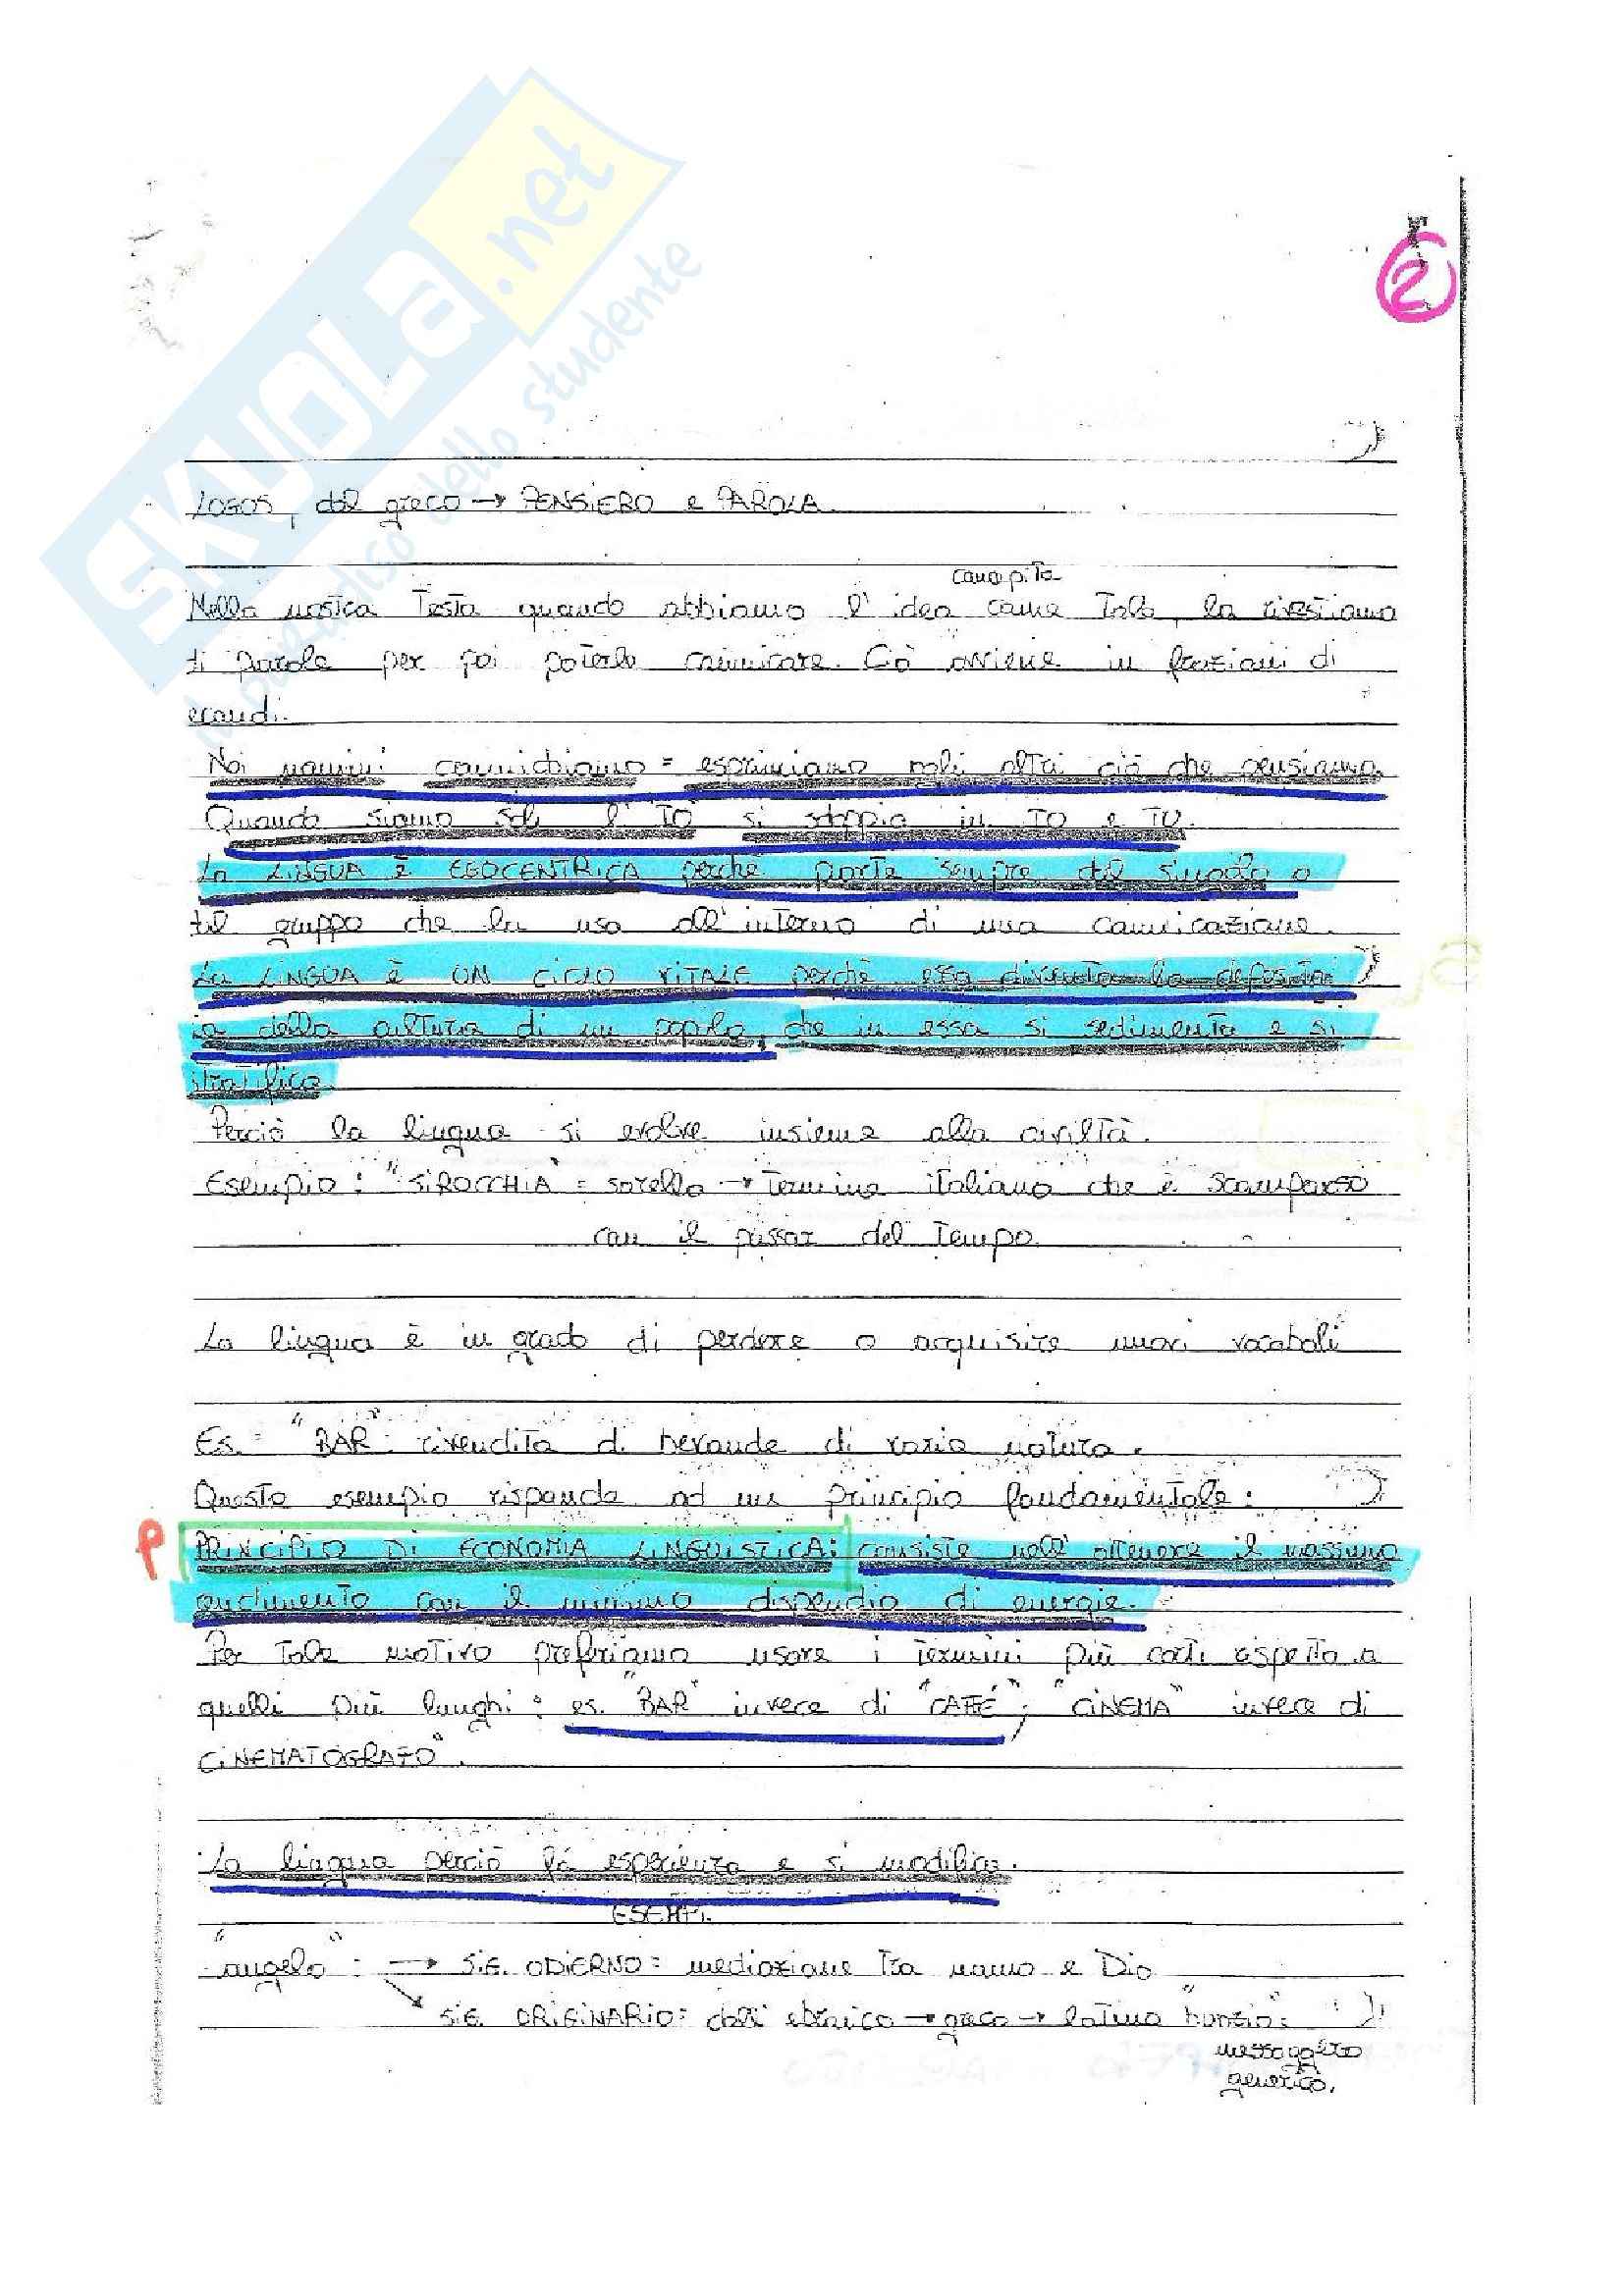 SKUOLA.net
il paradiso dello studente
2
LOGOS, dal greco → PENSIERO e PAROLA.
concepita
Nella nostra testa quando abbiamo l'idea come tale, la rivestiamo
di parole per poi poterla comunicare. Ciò avviene in frazioni di
secondi.
Noi uomini comunichiamo = esprimiamo agli altri ciò che pensiamo.
Quando siamo soli l'IO si sdoppia in IO e TU.
La LINGUA è EGOCENTRICA perché parte sempre dal singolo o
dal gruppo che la usa all'interno di una comunicazione.
La LINGUA è UN CICLO VITALE perché essa diventa la depositar
ia della cultura di un popolo, che in essa si sedimenta e si
stratifica.
Perciò la lingua si evolve insieme alla civiltà.
Esempio: "SIROCCHIA" = sorella → termine italiano che è scomparso
con il passar del tempo.
La lingua è in grado di perdere o acquisire nuovi vocaboli
Es. = "BAR": rivendita di bevande di varia natura.
Questo esempio risponde ad un principio fondamentale:
P PRINCIPIO DI ECONOMIA LINGUISTICA: consiste nell'ottenere il massimo
rendimento con il minimo dispendio di energie.
Per tale motivo preferiamo usare i termini più corti rispetto a
quelli più lunghi: es. "BAR" invece di "CAFFÈ"; "CINEMA" invece di
CINEMATOGRAFO".
La lingua perciò fa esperienza e si modifica.
ESEMPI:
"angelo": → SIG. ODIERNO: mediazione tra uomo e Dio
↘ SIG. ORIGINARIO: dall'ebraico → greco → latino "nunzio":
messaggero
generico.